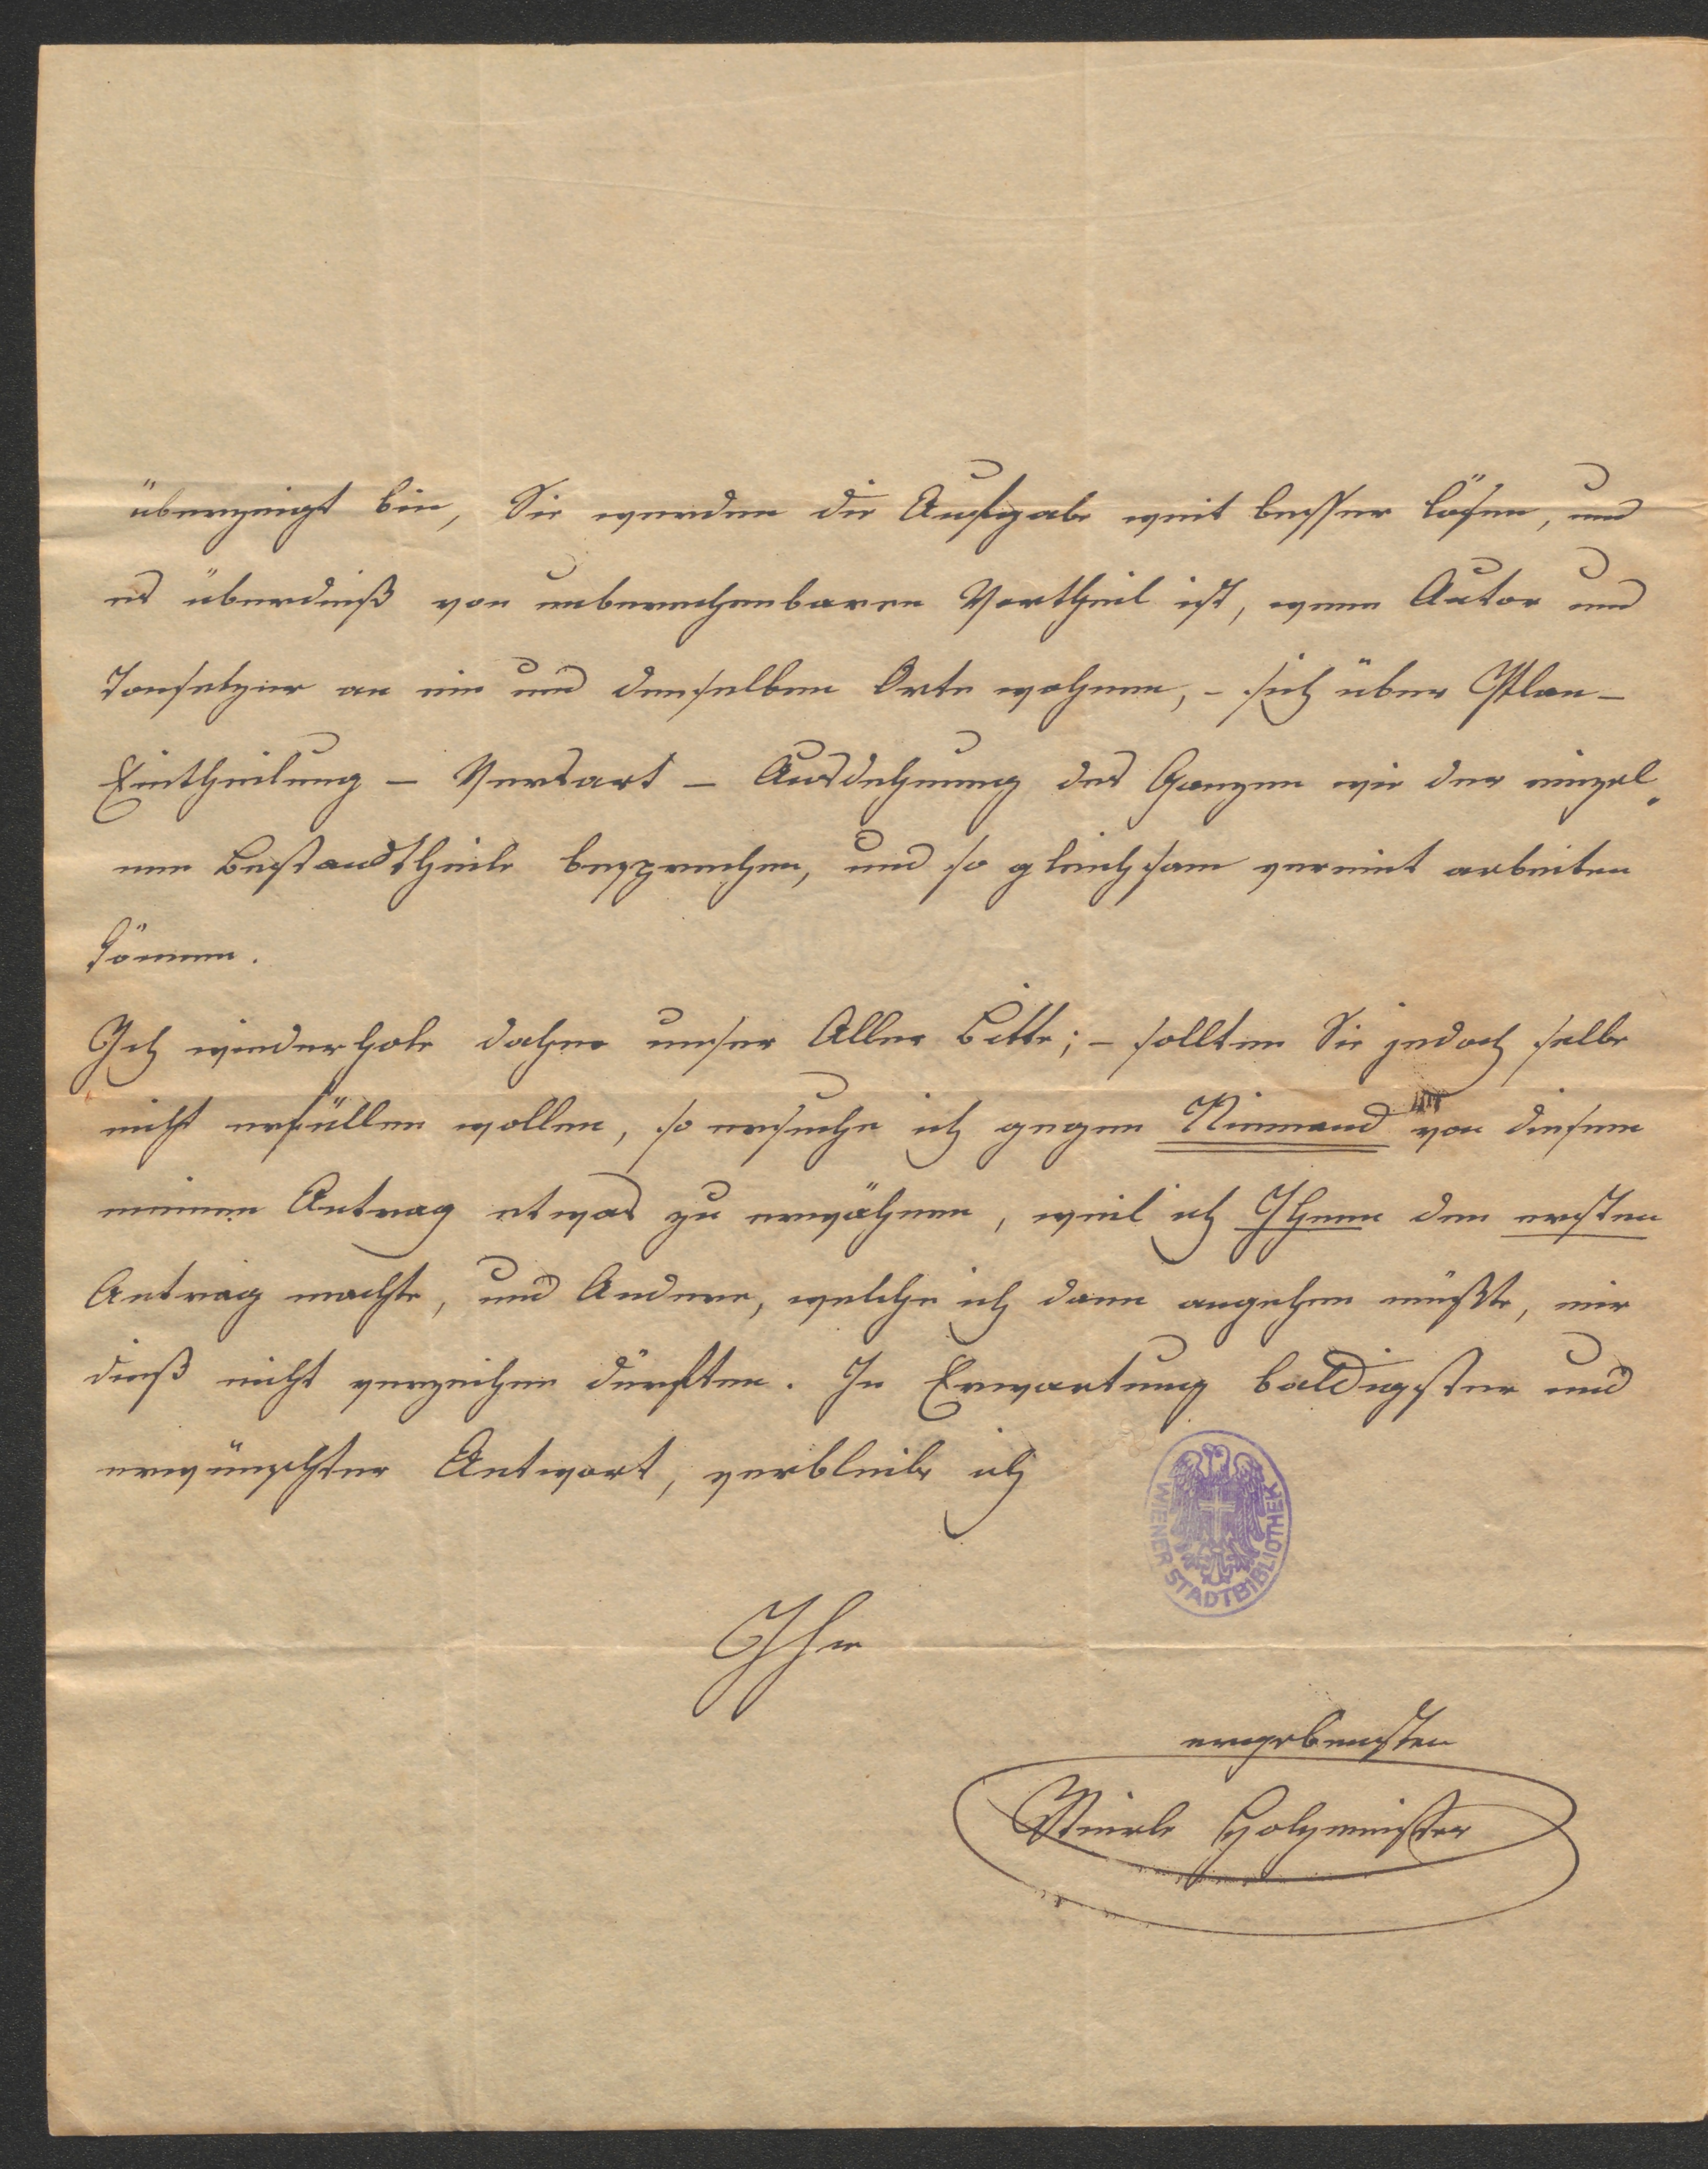 überzeugt bin, Sie werden die Aufgabe weit besser lösen, und
es überdieß von unberechenbaren Vortheil ist, wenn Autor und
Tonsetzer an ein und demselben Orte wohnen, – sich über Plan –
Eintheilung – Versart – Ausdehnung des Ganzen wie der einzel„
nen Bestandtheile besprechen, und so gleichsam vereint arbeiten
können.
Ich wiederhole daher unser Aller Bitte; – sollten Sie jedoch selbe
nicht erfüllen wollen, so ersuche ich gegen Niemand von diesem
meinem Antrag etwas zu erwähnen, weil ich Ihnen den ersten
Antrag machte, und Andere, welche ich dann angehen müßte, mir
dieß nicht verzeihen dürften. In Erwartung baldigster und
erwünschter Antwort, verbleibe ich
WIENER STADTBIBLIOTHEK
Ihr
ergebensten
Holzmeister